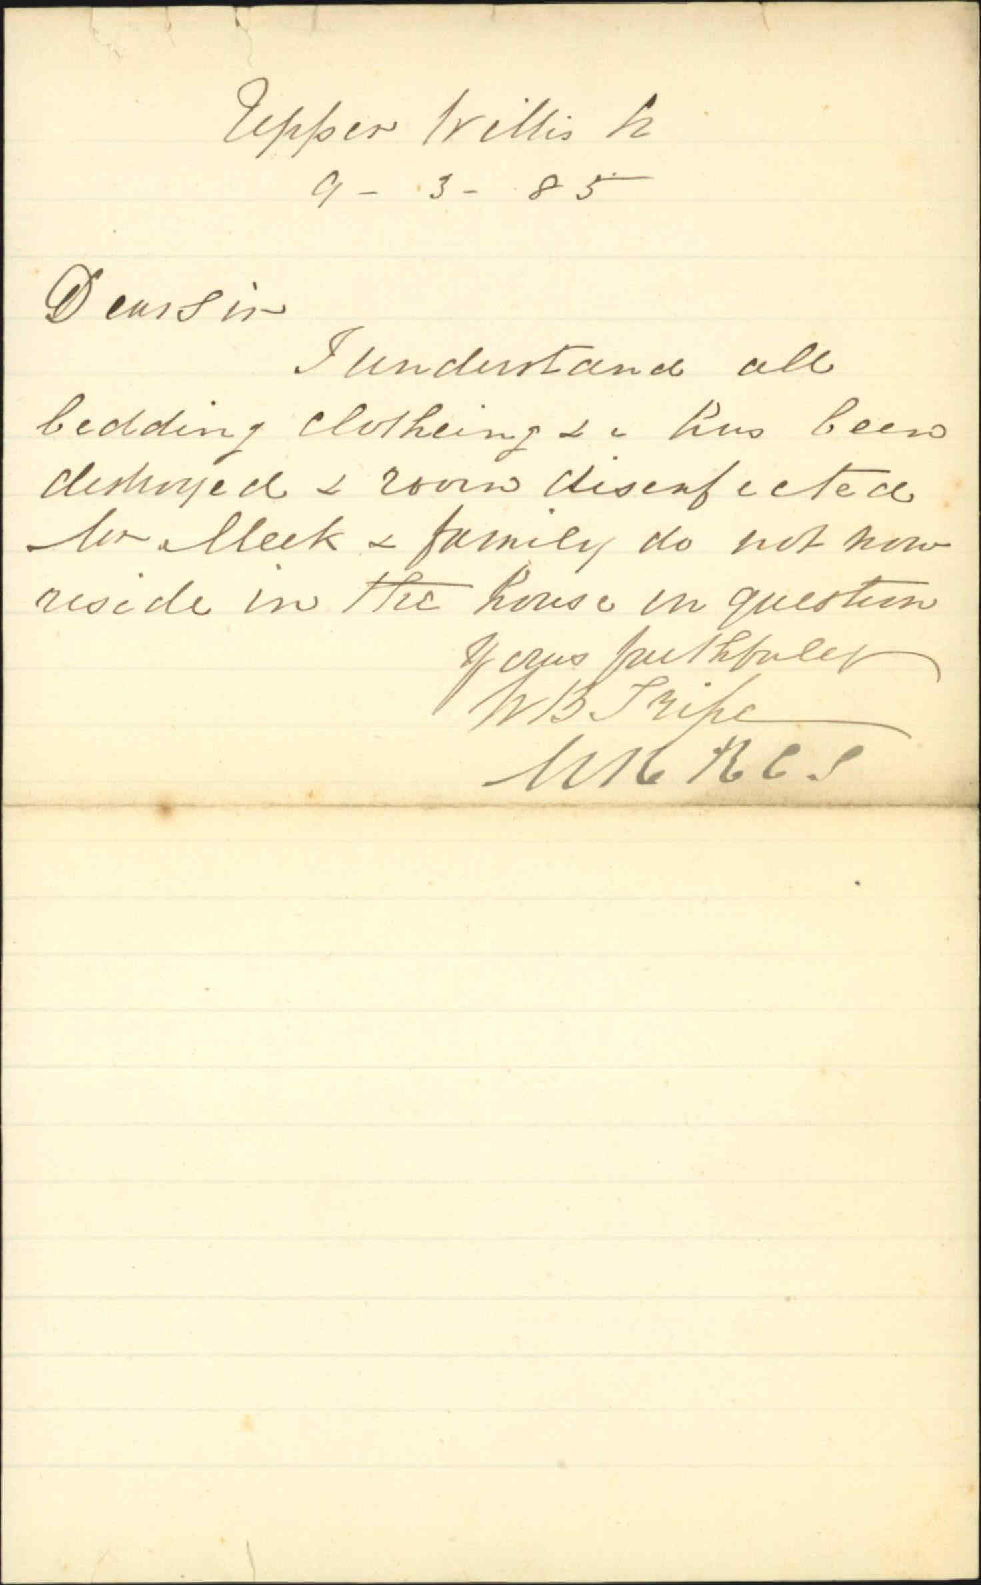 Upper Willis St
9 - 3 - 85
Dear Sir
I understand all
bedding clotheing &c has been
destroyed & room disenfected
Mr Meek & family do not now
reside in the house in question
Yours faithfully
W B Tripe
M R C S